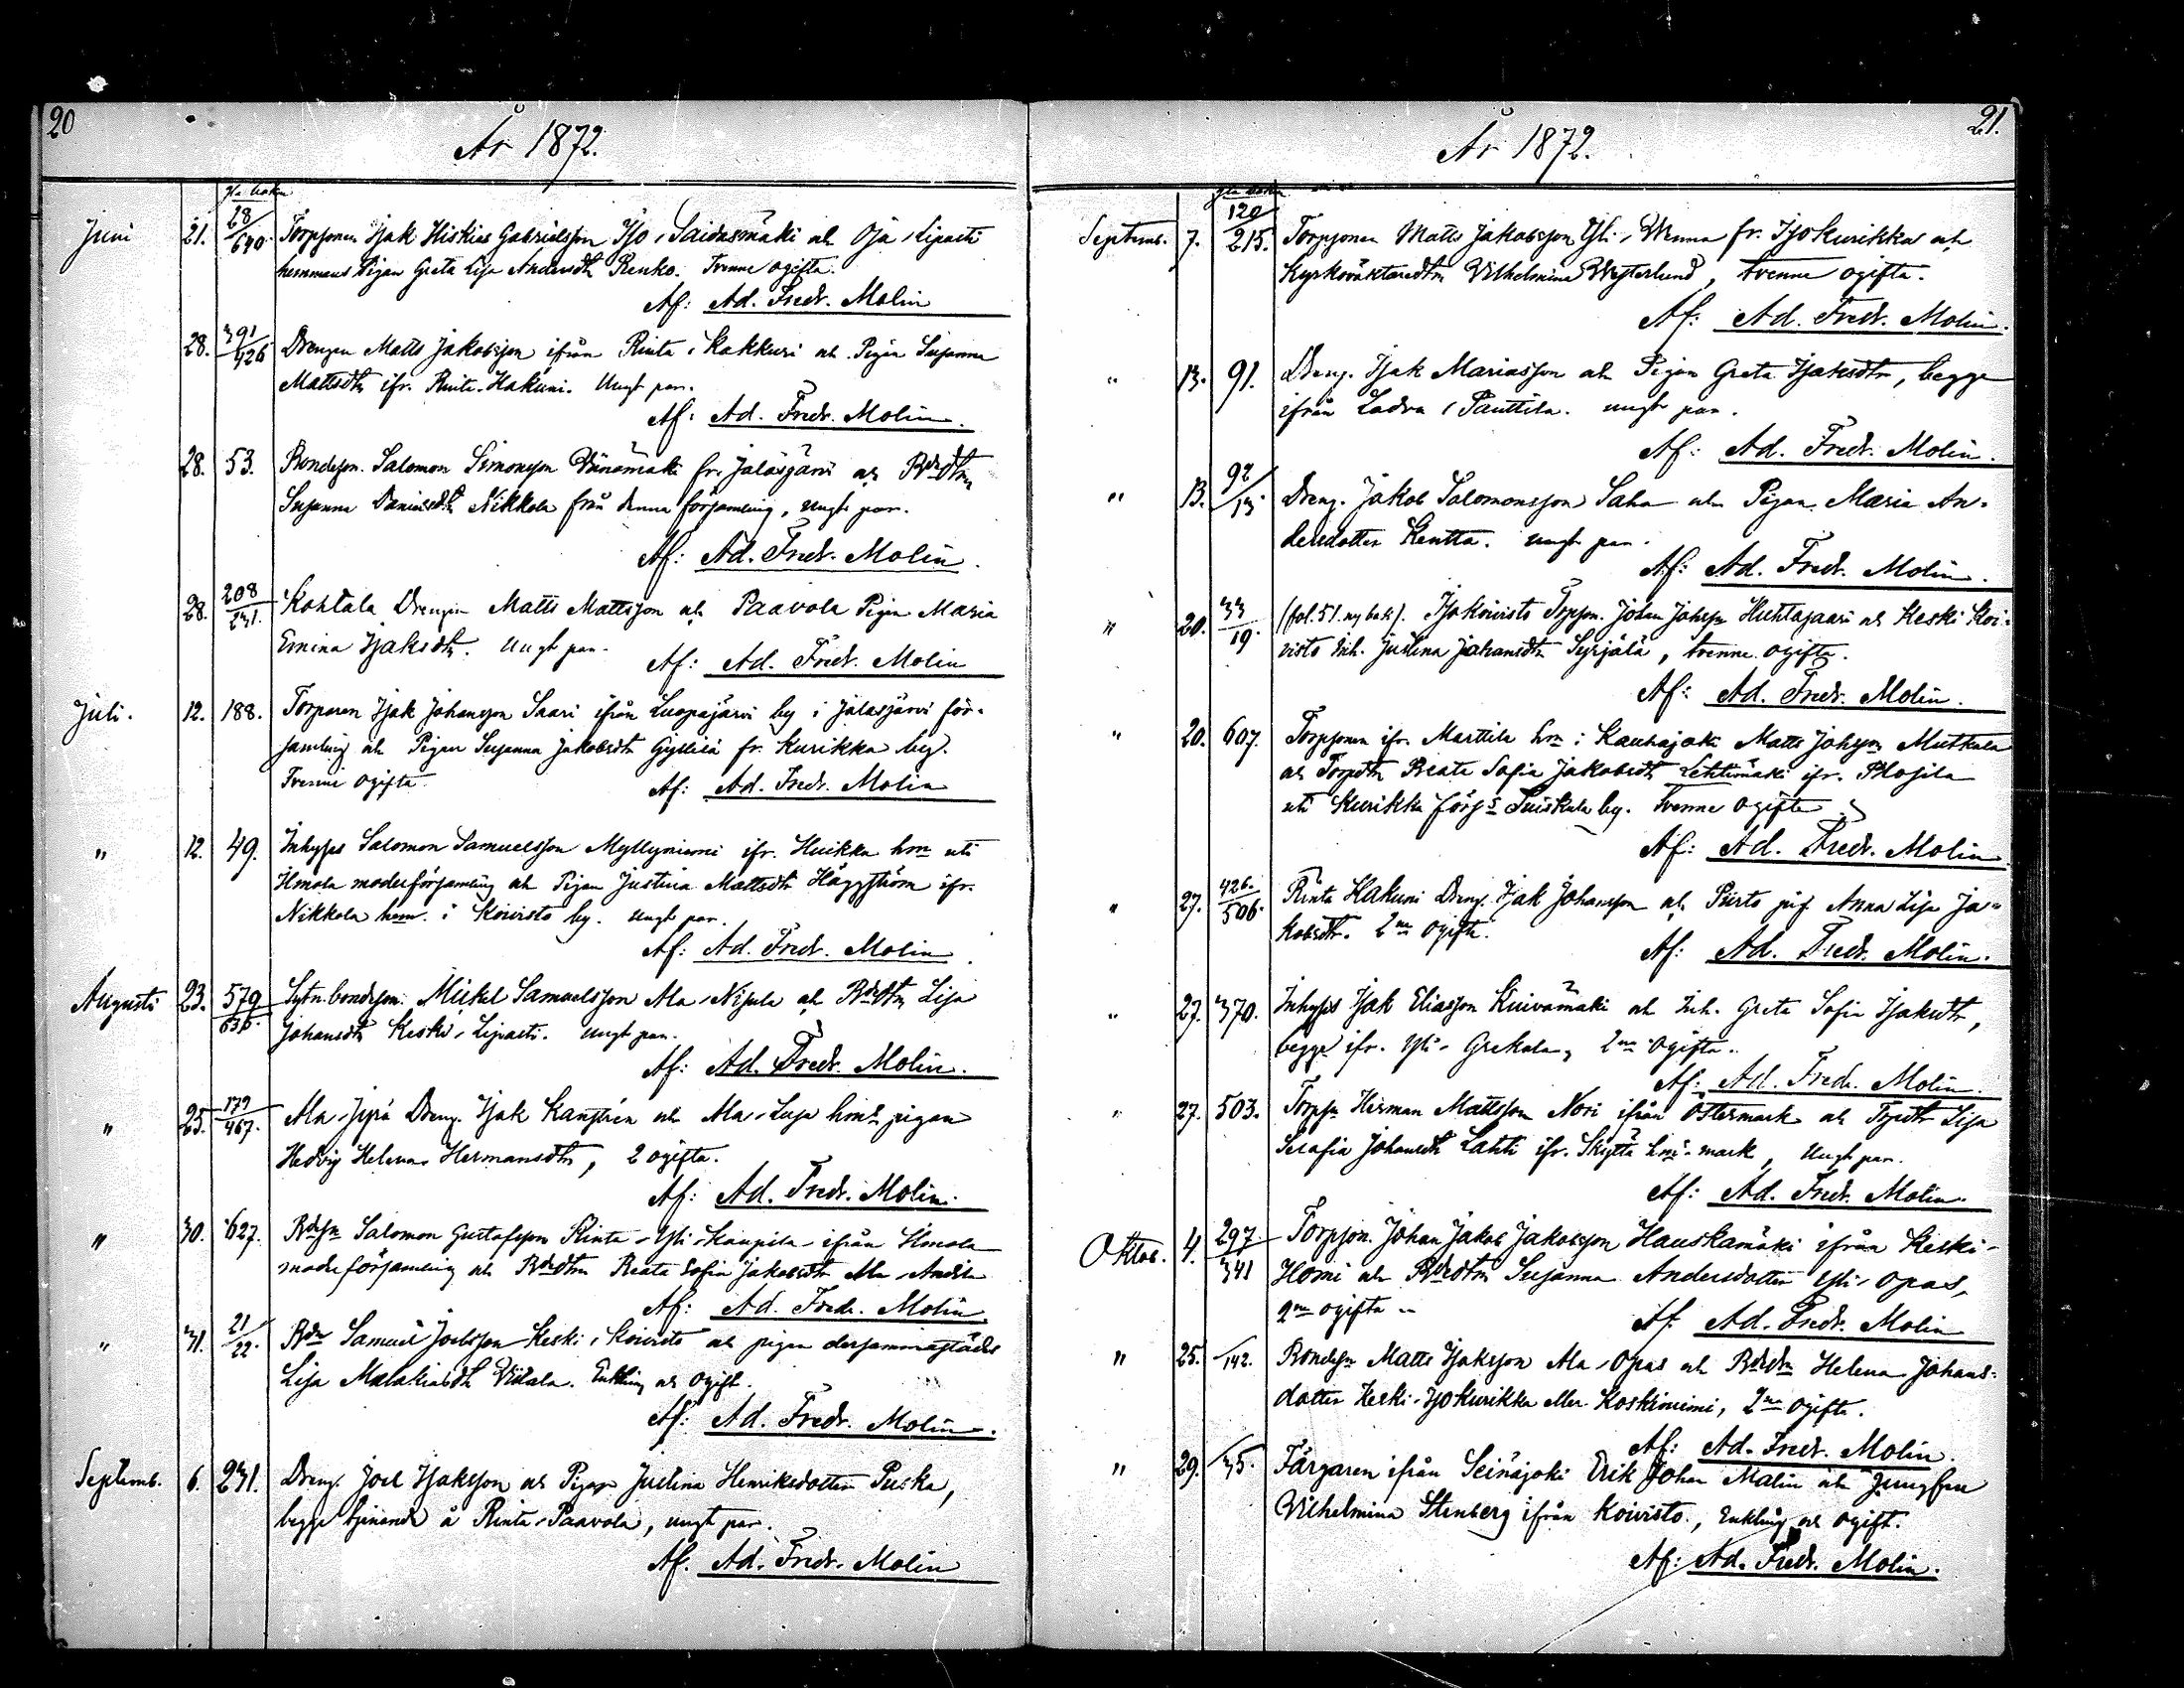 20
År 1872.
Juni 21. 28/640. Torpsonen Isak Hiskias Gabrielsson Iso-Saidasmäki och Oja-Lipasti
hemmans Pigan Greta Lisa Andersdtr Renko. Tvenne ogifta.
Af: Ad. Fredr. Molin
28. 391/426 Drengen Matts Jakobsson ifrån Rinta-Kakkuri och Pigan Susanna
Mattsdtr ifr. Rinta-Hakuni. Ungt par.
Af: Ad. Fredr. Molin.
28. 53. Bondeson. Salomon Simonsson Wänämäki fr. Jalasjärvi och Bdedtrn
Susanna Danielsdtr Nikkola från denna församling, ungt par.
Af: Ad. Fredr. Molin.
28. 208/231. Kohtala Drengen Matts Mattsson och Paavola Pigan Maria
Emina Isaksdtr. Ungt par.
Af: Ad. Fredr. Molin
Juli. 12. 188. Torparen Isak Johansson Saari ifrån Luopajärvi by i Jalasjärvi för-
samling och Pigan Susanna Jakobsdtr Gyllisä fr. Kurikka by.
Tvenne ogifta.
Af: Ad. Fredr. Molin
" 12. 49. Inhyses Salomon Samuelsson Myllyniemi ifr. Huikka hmn uti
Ilmola moderförsamling och Pigan Justina Mattsdtr Häggström ifr.
Nikkola hem. i Koivisto by. ungt par.
Af: Ad. Fredr. Molin.
Augusti 23. 579/636. Sytn. bondeson. Mickel Samuelsson Ala-Nisula och Bdedtrn Lisa
Johansdtr Keski-Lipasti. ungt par.
Af: Ad. Fredr. Molin.
" 25. 179/467. Ala-Jyrä Dreng. Isak Kangstrén och Ala-Luja hmns pigan
Hedvig Helena Hermansdtr, 2 ogifta.
Af: Ad. Fredr. Molin.
" 30. 627. Bdesn Salomon Gustafsson Rinta-Yli-Kaupila ifrån Ilmola
moderförsamling och Bdedtrn Beata Sofia Jakobsdtr Ala-Andila
Af: Ad. Fredr. Molin.
" 31. 21/22. Bdn Samuel Joelsson Keski-Koivisto och pigan dersammastädes
Lisa Malakiasdtr Viitala. Enkling och ogift.
Af: Ad. Fredr. Molin.
Septemb. 6. 231. Dreng. Joel Isaksson och Pigan Justina Henriksdotter Puska,
begge tjenande å Rinta-Paavola, ungt par.
Af. Ad. Fredr. Molin
21.
År 1872.
Septemb. 7. 120/215. Torpsonen Matts Jakobsson Yli-Wenna fr. Isokurikka och
Kyrkoväktaredtrn Vilhelmina Westerlund, tvenne ogifta.
Af: Ad. Fredr. Molin.
" 13. 91. Dreng. Isak Mariasson och Pigan Greta Isaksdtr, begge
ifrån Ladva-Panttila. ungt par.
Af: Ad. Fredr. Molin.
" 13. 92/13. Dreng. Jakob Salomonsson Saha och Pigan Maria An-
dersdotter Kentta. ungt par.
Af: Ad. Fredr. Molin.
" 20. 33/19. (fol. 51. ny bok). Isokoivisto Torpson. Johan Johsson Huhtasaari och Keski Koi-
visto Inh. Justina Johansdtr Syrjälä, tvenne ogifta.
Af: Ad. Fredr. Molin.
" 20. 607. Torpsonen ifr. Marttila hmn i Kauhajoki Matts Johsson Mutkala
och Torpdtrn Beata Sofia Jakobsdtr Lehtimäki ifr. Plosila
uti Kurikka förs:s Tuiskula by. Tvenne ogifta.
Af: Ad. Fredr. Molin.
" 27. 426./506. Rinta Hakuni Dreng. Isak Johansson och Piirto pig. Anna Lisa Ja-
kobsdtr. 2ne ogifta.
Af: Ad. Fredr. Molin.
" 27. 370. Inhyses Isak Eliasson Kuivamäki och Inh. Greta Sofia Isaksdtr,
begge ifr. Yli-Grekula, 2ne ogifta.
Af: Ad. Fredr. Molin.
" 27. 503. Torpsn Herman Mattsson Nori ifrån Östermark och Torpdtr Lisa
Serafia Johansdtr Lahti ifr. Skyttä hms mark, Ungt par.
Af: Ad. Fredr. Molin.
Oktob. 4. 297/341 Torpson. Johan Jakob Jakobsson Hauskamäki ifrån Keski-
Homi och Bdedtrn Susanna Andersdotter Yli-Opas,
2ne ogifta
Af. Ad. Fredr. Molin
" 25. /142. Bondesn Matts Isaksson Ala-Opas och Bdedtrn Helena Johans-
dotter Keski-Isokurikka eller Koskiniemi, 2ne ogifta.
Af: Ad. Fredr. Molin.
" 29. /35. Färgaren ifrån Seinäjoki Erik Johan Malin och Jungfru
Vilhelmina Stenberg ifrån Koivisto., Enkling och ogift.
Af: Ad. Fredr. Molin.